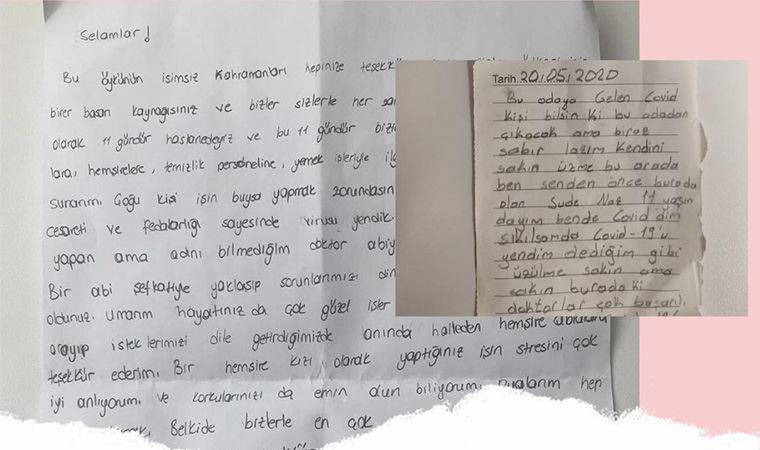 Selamlar!
Bu öykünün isimsiz Kahramanları hepinize
birer başarı kaynağısınız ve bizler sizlerle her
olarak 11 gündür hastanedeyiz ve bu 11 gündür
lara, hemşirelere, temizlik personeline, yemek işleriyle
sunarım. Çoğu kişi işin buysa yapmak zorundasın
Cesareti ve fedakarlığı sayesinde virüsü yendik.
yapan ama adını bilmediğim doktor
Bir abi şefkatiyle yaklaşıp sorunlarımızı
oldunuz. Umarım hayatınız da çok güzel işler
arayıp isteklerimizi dile getirdiğimizde anında halleden hemşire
teşekkür ederim. Bir hemşire kızı olarak yaptığınız işin stresini çok
iyi anlıyorum. ve korkularınızı da emin olun biliyorum. Dualarım hep
Belkide bizlerle en çok
Tarih 20/05/2020
Bu odaya Gelen Covid
Kişi bilsin ki bu odadan
çıkacak ama biraz
sabır lazım Kendini
sakın üzme bu arada
ben senden önce burada
olan Sude Naz 11 yaşın
dayım bende Covid'dim
sıkılsamda Covid-19'u
yendim dediğim gibi
üzülme sakın ama
sakın burada ki
doktorlar çok başarılı